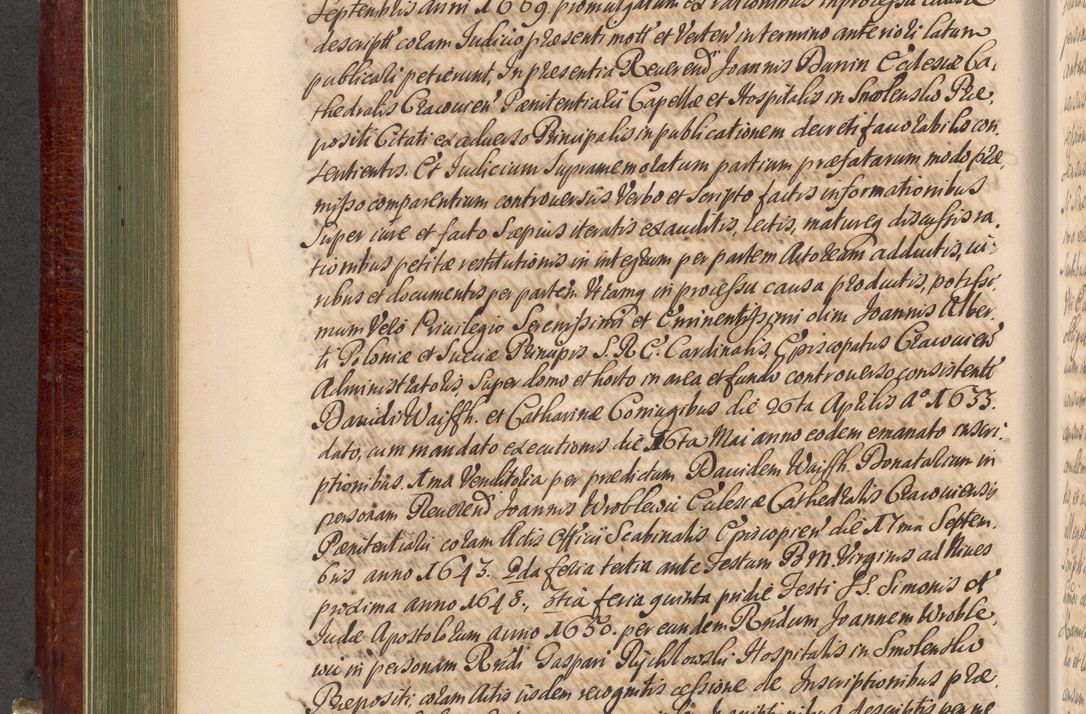 Septembris anni 1669. promulgatum ex rationibus in processu causæ
descriptt coram Judicio præsenti mott et Verten in termino anteriori latum
publicari petierunt, In præsentia Reverend Joannis Banin Ecclesiæ Ca,
thedralis Cracovien Pænitentiarii Capellæ et Hospitalis in Smolensko Præ,
positi Citati ex adverso Principalis in publicationem decreti favorabilis con,
sentientis. Et Judicium Supramemoratum partium præfatarum modo præ,
misso comparentium controversiis Verbo et Scripto factis informationibus
Super iure et facto Sæpius iteratis exauditis, lectis, matureq discussis ra,
tionibus petitæ restitutionis in integrum per partem Actoream adductis, iu,
ribus et documentis per partem Utramq in processu causa productis, potissi,
mum Vero Privilegio Serenissimi et Eminentissimi olim Joannis Alber,
ti Poloniæ et Sueciæ Principis S. R. E. Cardinalis, Episcopatus Cracovien
Administratoris, Super domo et horto in area et fundo controverso consistentt
Davidi Waiffh. et Catharinæ Coniugibus die 26ta Aprilis Ao 1633.
dato, cum mandato executionis die 16ta Mai anno eodem emanato inscri,
ptionibus. 1ma Venditoria per prædictum Davidem Waiffh. Donataliam in
personam Reverend Joannis Wroblewii Ecclesiæ Cathedralis Cracoviensis
Pænitentiarii coram Actis Officii Scabinalis Episcopien die 17ma Septem,
bris anno 1643. 2da feria tertia ante Festum B M. Virginis ad Nives
proxima anno 1648., 3tia feria quinta pridie Festi SS. Simonis et
Judæ Apostolorum anno 1650. per eundem Rndum Joannem Wroble,
wic in personam Rndi Gaspari Rychlowski Hospitalis in Smolensko
Præpositi, coram Actis iisdem recognitis cessione de Inscriptionibus præ,